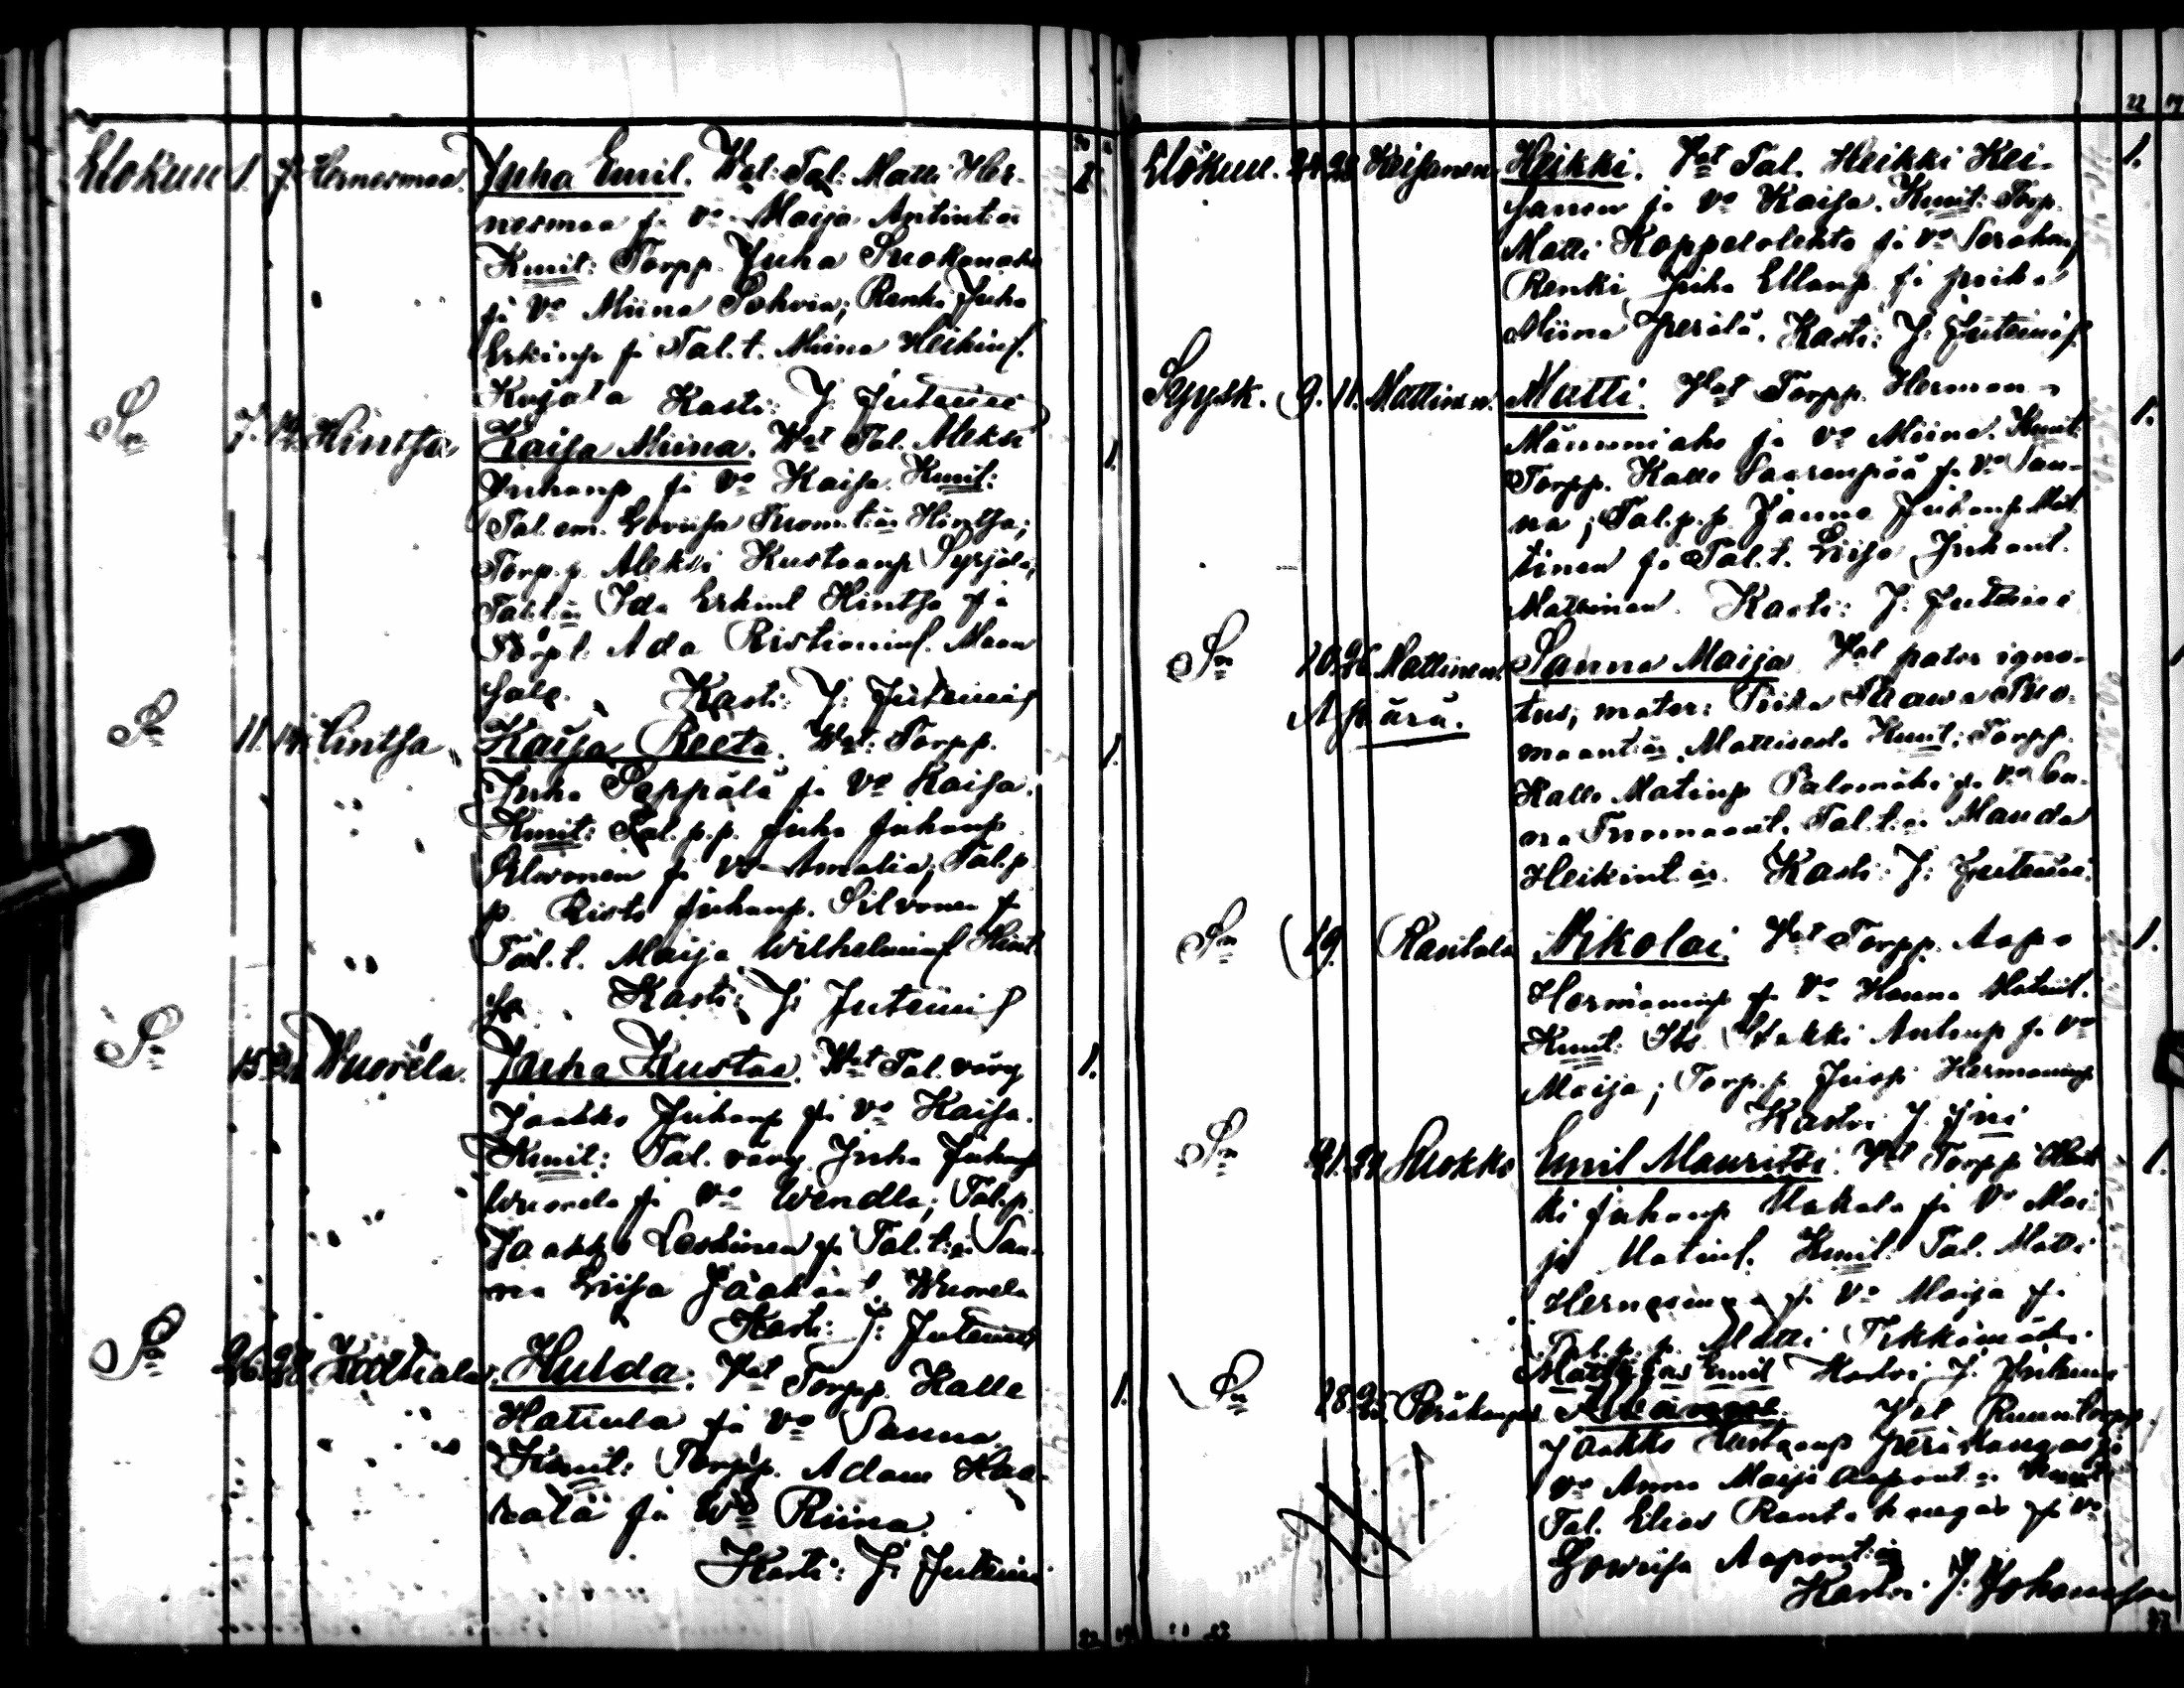 Elokuu 1. 7. Hernesmaa. Juha Emil. Wat: Tal: Matti Her-
nesmaa ja Vo Maija Antint:är
Kumit: Torpp. Juha Suokonaho
ja Vo Miina Sohvia; Renki Juha
Erkinp ja Tal.t. Miina Heikinf.
Kojola Kasti: J. Juteini
Sn 7. 14. Hintsa Kaisa Miina. Wat Tal. Aleksi
Juhanp ja Vo Kaisa. Kumit:
Tal. em. Loviisa Tuomt:är Hintsa;
Torp.p Aleksi Kustaanp Syrjälä,
Ida Erkint Hintsa ja
Torp.t. Ada Ristianinf. Maan
salo. Kasti: J. Juteini
Sn 11. 14. Hintsa Kaisa Reeta. Wat: Torpp.
Juha Seppälä ja Vo Kaisa.
Kumit: Tal.p.p. Juho Juhanp
Silvonen ja Vo Amalia; Tal.p.
p. Risto Juhanp. Silvonen ja
Tal.t. Maija Wilhelminf Hint-
sa Kasti: J: Juteini
Sn 15. Wuorela. Juha Kustaa. Wat Tal. vävy
Jaakko Juhanp ja Vo Kaisa.
Kumit: Tal. vävy Juha Juhanp
Wuorela ja Vo Wendla; Tal.p.
Jaakko Leskinen ja Tal.t:är San-
na Liisa Jaakint. Wuorela
Kasti: J: Juteini
Sn 26. 28. Hulda: Vat Torpp. Kalle
Hatiula ja Vo Sanna
Kumit: Torpp. Adam Haa-
ratä ja Wo Riina.
Kasti: J: Juteini
Elokuu. 24. 28 Keisanen Heikki. Vat Tal. Heikki Kei-
sanen ja Vo Kaisa. Kumit: Torp.
Matti Koppelolehto ja Vo
Renki Juha Ellanp. ja piika
Miina Perälä. Kasti: J: Juteini
Syysk. 9. 11. Mattinen. Matti: Vat Torpp. Herman
Mäenniaho ja Vo Miina. Kumit.
Torpp. Kalle Saarenpää ja Vo San-
na; Tal.p.p Janne Juhanp Mat
tinen ja Tal.t. Liisa Juhant.
Mattinen. Kasti: J: Juteini
Sn 20. 26 Mattinen Sanna Maija Vat pater igno-
Äpärä. tus, mater: Piika Staawa Tuo-
maant:är Mattisesta Kumit: Torpp.
Kalle Matinp Palomäki ja Vo San-
na Tuomaant. Tal.t:är Manda
Heikint:är. Kasti: J: Juteini.
Sn 19. Rautala Nikolai. Vat Torpp. Aapo
Hermaninp ja Vo Hanna Matint.
Kumit: Its. Antinp ja Vo
Maija; Torp.p Juopi Hermaninp
Kastoi J. Jni
Sn 21. 24 Suokko Emil Mauritsi. Vat Torpp Heik
ki Juhanp Makala ja Vo Mai-
ja Matinf. Kumit: Tal. Matti
Hernesmaa ja Vo Maija ja
Tal.p.p. Matti Tikkimäki.
Matthias Emil Kastoi J. Juteini
Sn 18. Peräkangas Vat Ruununtorpp.
Jaakko Kustaanp Peräkangas ja
Vo Anna Maija Aapont:är Kumit:
Tal. Elias Rantakangas ja Vo
Lowisa Aapont:är
Kastoi J: Johansson